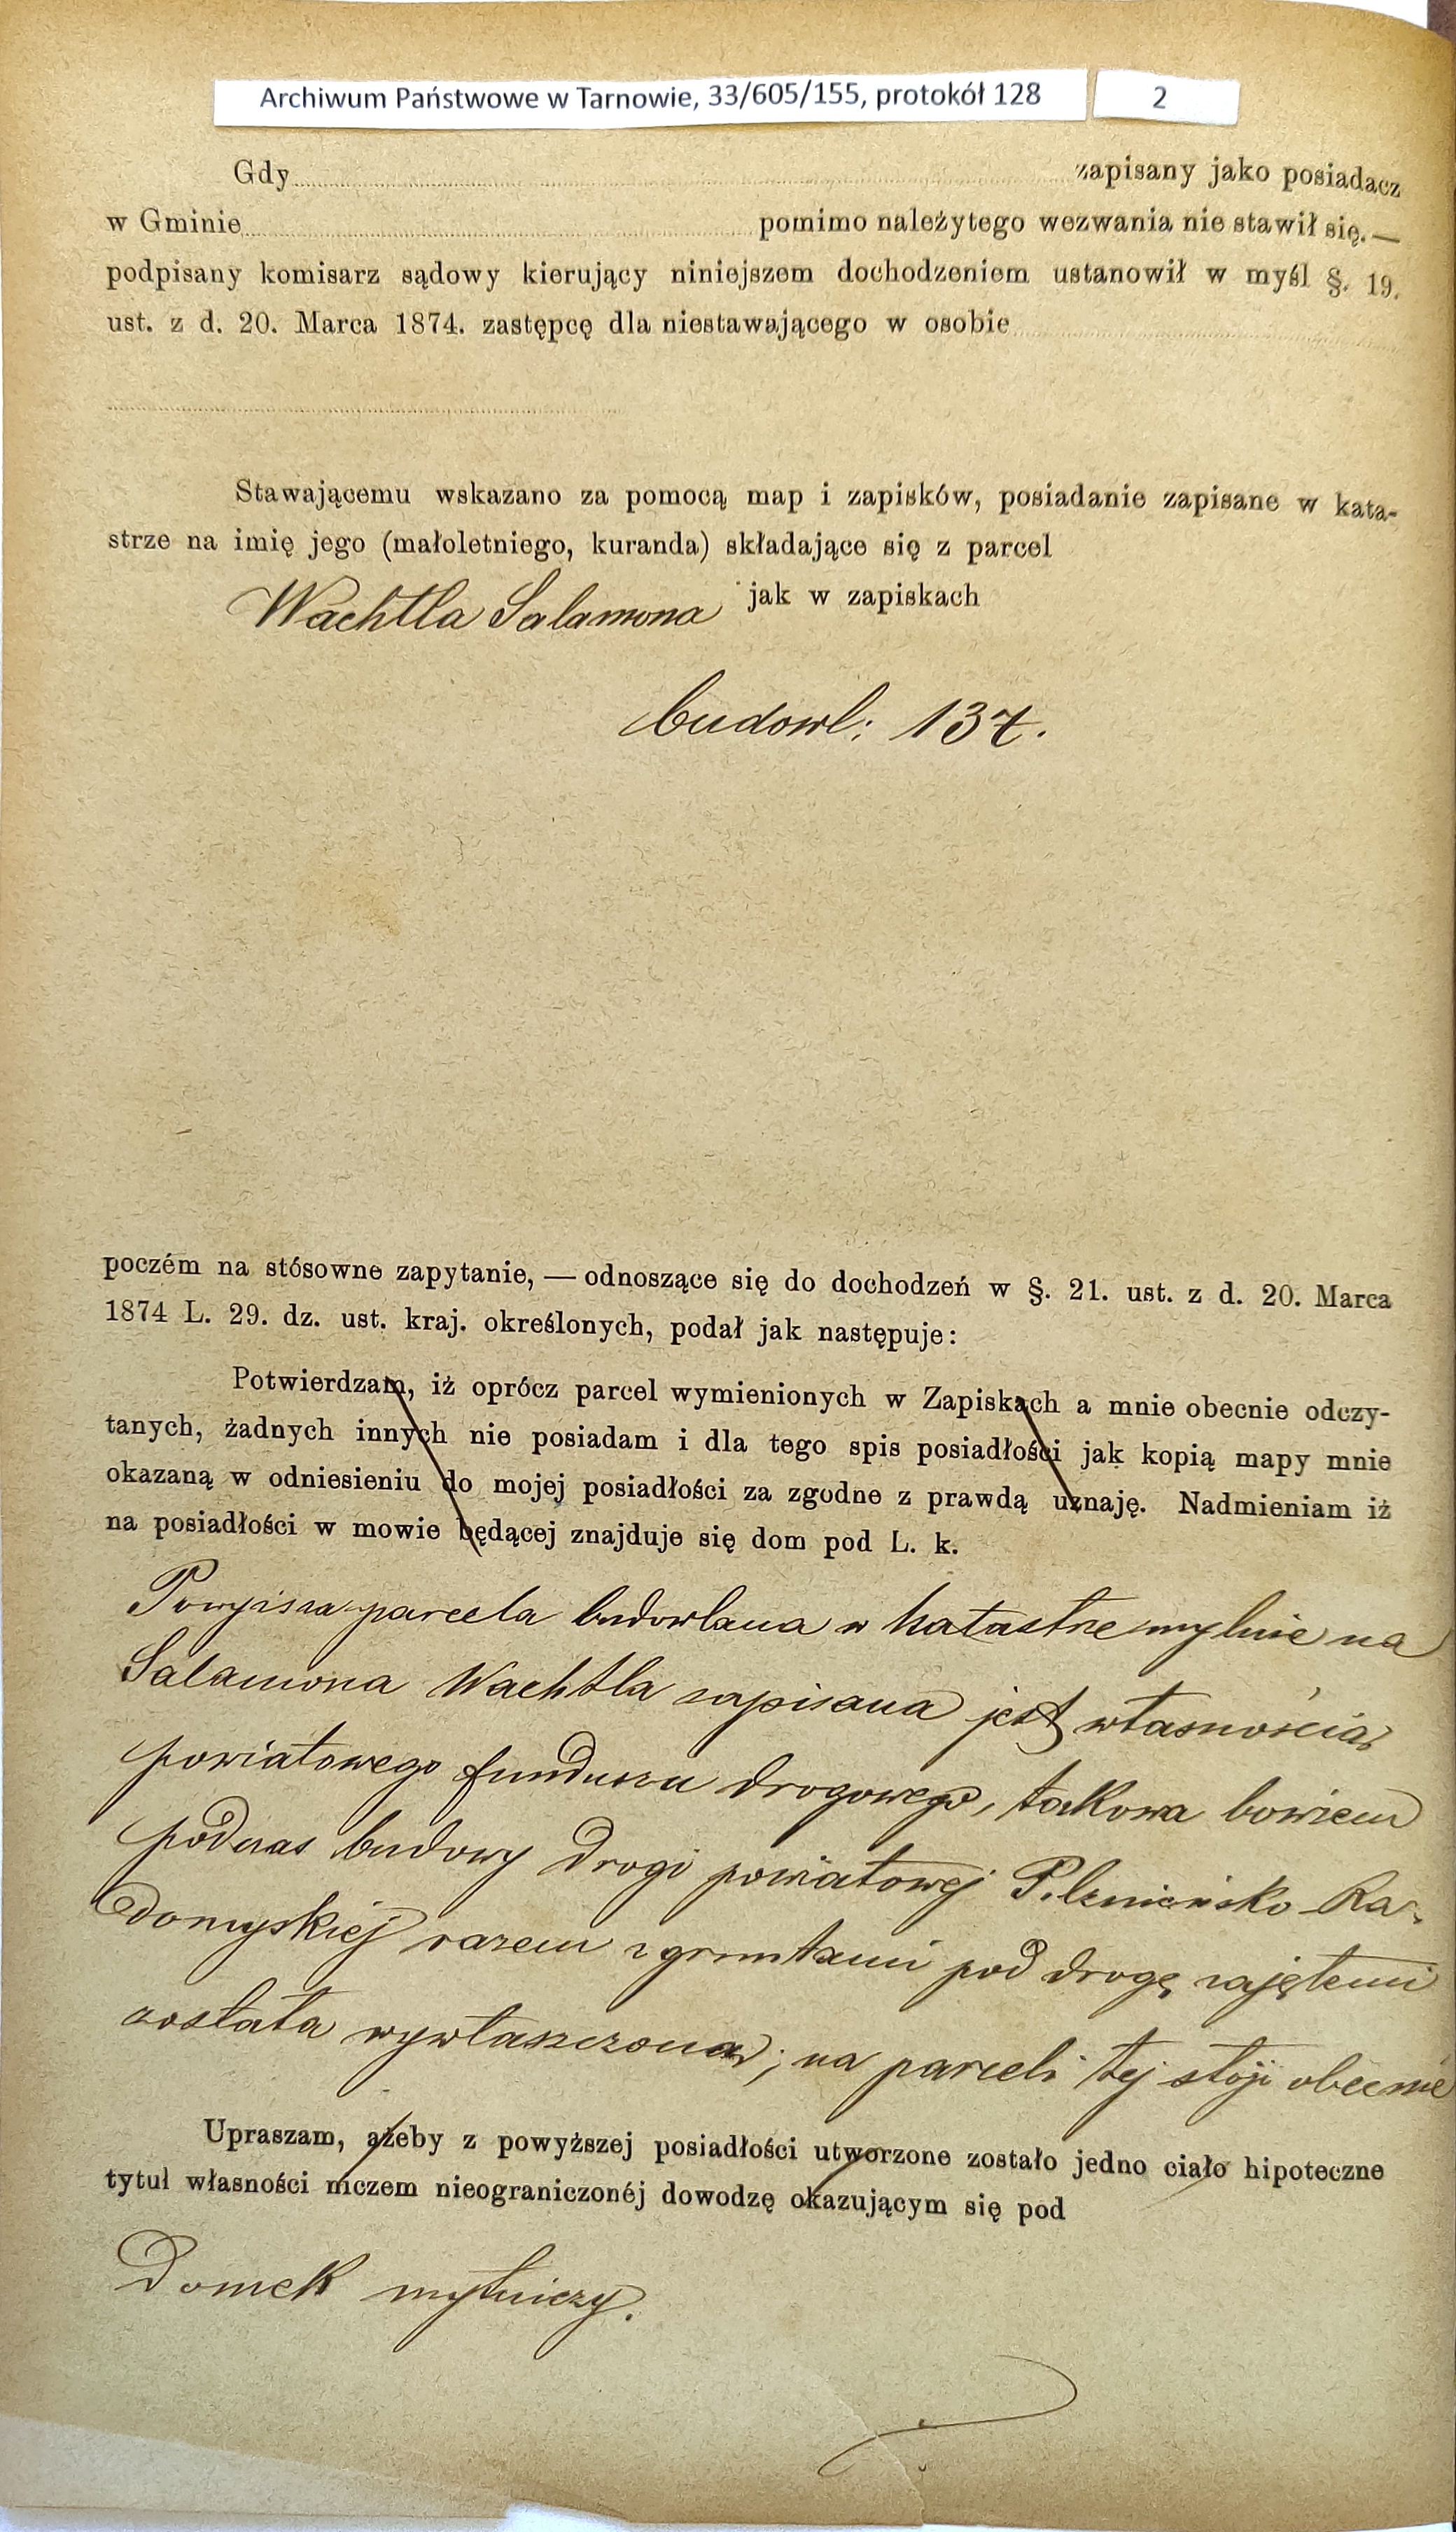 Archiwum Państwowe w Tarnowie, 33/605/155, protokół 128 2
Gdy zapisany jako posiadacz
w Gminie pomimo należytego wezwania nie stawił się. —
podpisany komisarz sądowy kierujący niniejszem dochodzeniem ustanowił w myśl §. 19.
ust. z d. 20. Marca 1874. zastępcę dla niestawającego w osobie
Stawającemu wskazano za pomocą map i zapisków, posiadanie zapisane w kata-
strze na imię jego (małoletniego, kuranda) składające się z parcel
Wachtla Salamona jak w zapiskach
budowl: 137.
poczém na stósowne zapytanie, — odnoszące się do dochodzeń w §. 21. ust. z d. 20. Marca
1874 L. 29. dz. ust. kraj. określonych, podał jak następuje:
Potwierdzam, iż oprócz parcel wymienionych w Zapiskach a mnie obecnie odczy-
tanych, żadnych innych nie posiadam i dla tego spis posiadłości jak kopią mapy mnie
okazaną w odniesieniu do mojej posiadłości za zgodne z prawdą uznaję. Nadmieniam iż
na posiadłości w mowie będącej znajduje się dom pod L. k.
Powyższa parcela budowlana w katastrze mylnie na
Salamona Wachtla zapisana jest własnością
powiatowego funduszu drogowego, takowa bowiem
podczas budowy drogi powiatowej Pilznieńsko-Ra-
domyskiej razem z gruntami pod drogę zajętemi
została wywłaszczona; na parceli tej stoji obecnie
Upraszam, ażeby z powyższej posiadłości utworzone zostało jedno ciało hipoteczne
tytuł własności niczem nieograniczonéj dowodzę okazującym się pod
Domek mytniczy.